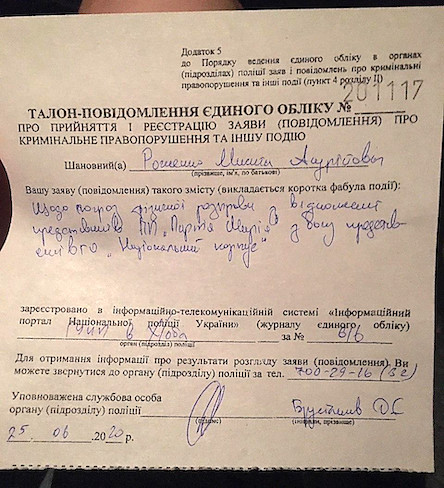 Додаток 5
до Порядку ведення єдиного обліку в органах
(підрозділах) поліції заяв і повідомлень про кримінальні
правопорушення та інші події (пункт 4 розділу II)
201117
ТАЛОН-ПОВІДОМЛЕННЯ ЄДИНОГО ОБЛІКУ №
ПРО ПРИЙНЯТТЯ І РЕЄСТРАЦІЮ ЗАЯВИ (ПОВІДОМЛЕННЯ) ПРО
КРИМІНАЛЬНЕ ПРАВОПОРУШЕННЯ ТА ІНШУ ПОДІЮ
Шановний(а) Микита
(прізвище, ім'я, по батькові)
Вашу заяву (повідомлення) такого змісту (викладається коротка фабула події):
Щодо погроз фізичної розправи у відношенні
представників ПП „Партія Шарія" з боку представ
„Національний корпус"
зареєстровано в інформаційно-телекомунікаційній системі «Інформаційний
портал Національної поліції України» (журналу єдиного обліку)
ГУНП в Х/обл за № б/б
орган (підрозділ) поліції
Для отримання інформації про результати розгляду заяви (повідомлення) Ви
можете звернутися до органу (підрозділу) поліції за тел. 700-29-16
Уповноважена службова особа
органу (підрозділу) поліції
(підпис) (ініціали, прізвище)
25.06.2020 р.